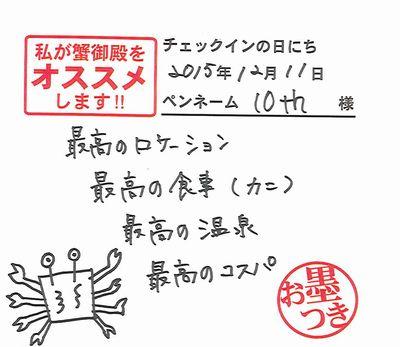 私が蟹御殿を
オススメ
します!!
チェックインの日にち
2015年12月11日
ペンネーム 10th 様
最高のロケーション
最高の食事(カニ)
最高の温泉
最高のコスパ
お墨つき